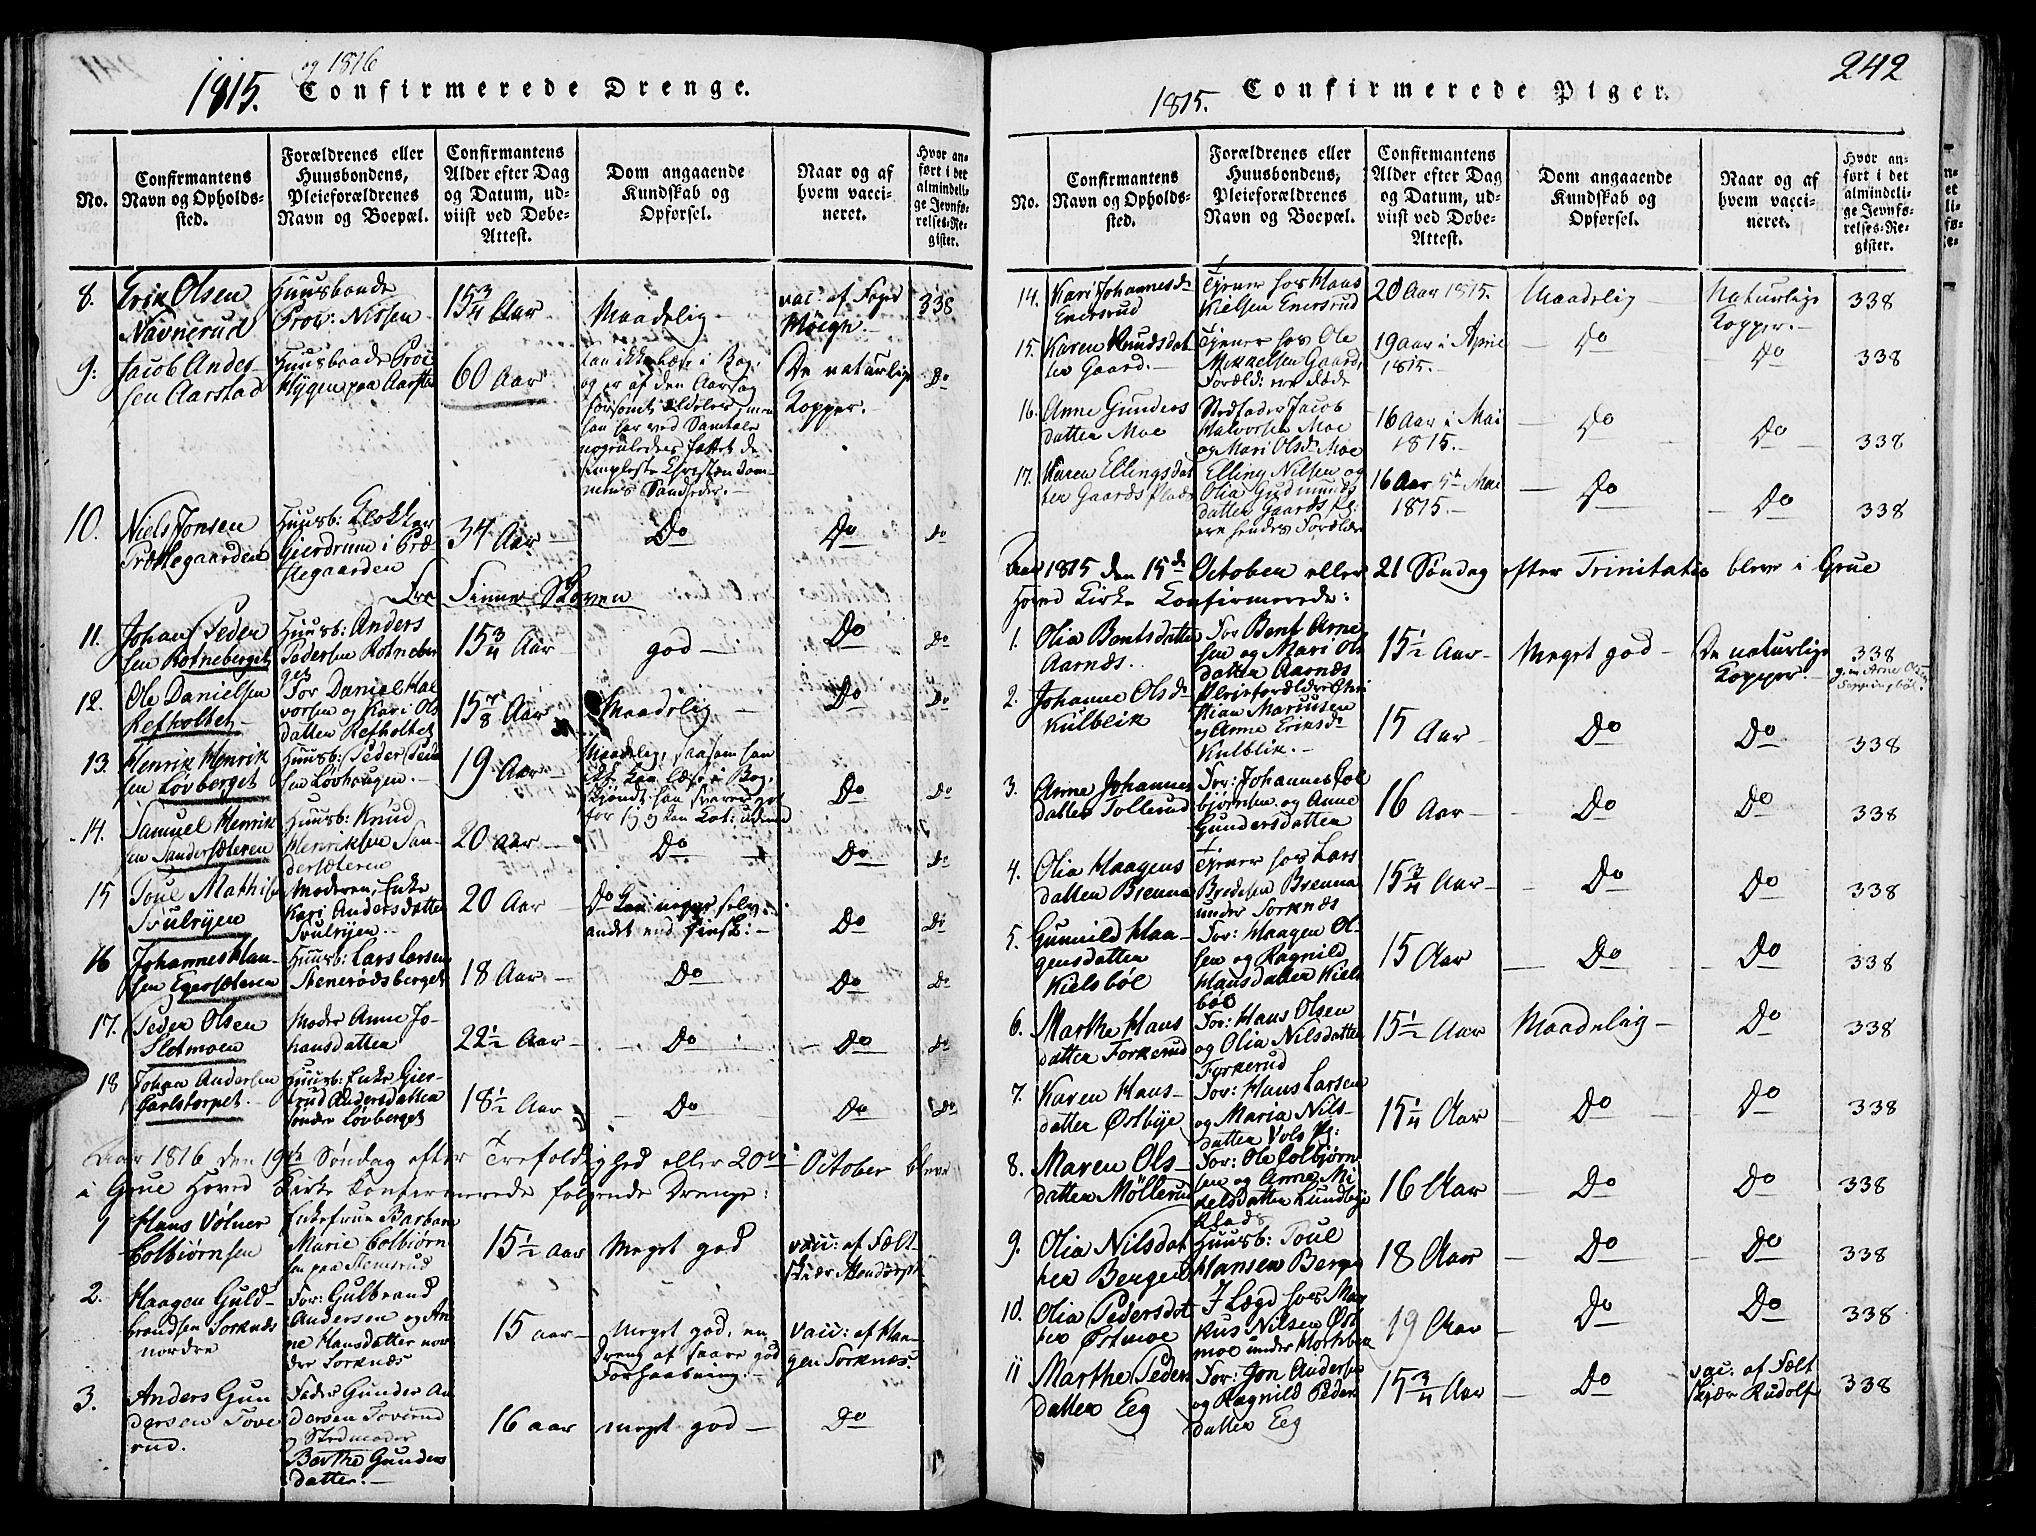 og 1816
1815. Confirmerede Drenge.
No.
Confirmantens
Navn og Opholds-
sted.
Forældrenes eller
Huusbondens,
Pleieforældrenes
Navn og Boepæl.
Confirmantens
Alder efter Dag
og Datum, ud-
viist ved Døbe-
Attest.
Dom angaaende
Kundskab og
Opførsel.
Naar og af
hvem vacci-
neret.
Hvor an-
ført i det
almindeli-
ge Jevnfø-
relses-Re-
gister.
8. Erik Olsen
Navnerud
Huusbonde
Prov: Nissen
15 3/4 Aar
Maadelig
vac: af Fogd
338
9. Jacob Ander-
sen Aarstad
60 Aar
kan ikke læse i Bog,
og er af den Aarsag
forsømt aldeles, men
han har ved Samtale
nogenledes fattet de
simpleste Christendom-
mens Sandheder.
De naturlige
Kopper.
Do
10. Niels Jonsen
Præstegaarden
Huusb: Klokker
Gierdrum i Præ-
stegaarden
34 Aar
Do
Do
Do
Fra Finne Skoven
11. Johan Peder
sen Rotneberget
Huusb: Anders
Pedersen Rotneber
get
15 3/4 Aar
god
Do
Do
12. Ole Danielsen
Refholtet
For Daniel Hal
vorsen og Kari Ols
datter Refholtet
15 7/8 Aar
Maadelig
Do
Do
13. Henrik Henrik
sen Løvberget
Huusb: Peder Peder
sen Løvhaugen.
19 Aar
Maadelig, saasom han
ikke kan læse i Bog,
skjøndt han svarer got
Do
Do
14. Samuel Henrik
sen Sandersæteren
Huusb: Knud
Henriksen San-
dersæteren
20 Aar
Do
Do
Do
15 Poul Mathis
Huulrijen
Moderen, Enke
Kari Andersdatter
20 Aar
Do
andet end finsk:
Do
Do
16 Johannes Han-
sen Egersæteren
Huusb: Lars Larsen
Stenerødsberget
18 Aar
Do
Do
Do
17. Peder Olsen
Slotmoen
Moder Anne Jo-
hansdatter
22 1/2 Aar
Do
Do
Do
18 Johan Andersen
Carlstorpet.
Huusb: Enke Gier-
trud Andersdatter
søndre Løvberget
18 1/2 Aar
Do
Do
Do
Aar 1816 den 19de Søndag efter Trefoldighed eller 20de October bleve
i Grue Hoved Kirke Confirmerede følgende Drenge:
1 Hans Vølner
Colbiørnsen
Enkefrue Barbara
Marie Colbiørn
sen paa Stemsrud
15 1/2 aar
Meget god
vacc: af Fælt-
2. Haagen Guld-
brandsen Torknæs
nordre
For: Gulbrand
Andersen og An-
ne Hansdatter nor
dre Torknæs
15 aar
Meget god, en
Dreng af saare god
Forhaabning.
Vacc: af Haa-
gen Torknæs
3. Anders Gun
dersen Tove
rud.
Fader Gunder An
dersen Toverud
og Stedmoder
Berthe Gunders
datter.
16 aar
meget god
Do
242
1815. Confirmerede Piger.
No.
Confirmantens
Navn og Opholds-
sted.
Forældrenes eller
Huusbondens,
Pleieforældrenes
Navn og Boepæl.
Confirmantens
Alder efter Dag
og Datum, ud-
viist ved Døbe-
Attest.
Dom angaaende
Kundskab og
Opførsel.
Naar og af
hvem vacci-
neret.
Hvor an-
ført i det
almindeli-
ge Jevnfø-
relses-Re-
gister.
14. Kari Johannesd.
Enersrud
Tjener hos Hans
Nielsen Enersrud
20 Aar 1815.
Maadelig
Naturlige
Kopper.
338
15. Karen Knudsdat
ter Gaard.
Tjener hos Ole
Mikkelsen Gaard,
Foræld: ere døde
19 aar i April
1815.
Do
Do
338
16. Anne Gunders
datter Moe
Stedfader Jacob
Halvorsen Moe
og Mari Olsd. Moe
16 Aar i Mai
1815.
Do
Do
338
17. Karen Ellingsdat
ter Gaards Plads
Elling Nilsen og
Olia Gudmunds
datter Gaards Pl:
ere hendes Forældre
16 Aar 5te Mai
1815.
Do
Do
338
Aar 1815 den 15de October eller 21 Søndag efter Trinitatis bleve i Grue
Hoved Kirke Confirmerede:
1. Olia Bentsdatter
Aarnæs.
For Bent Arne
sen og Mari Ols
datter Aarnæs
15 1/2 Aar
Meget god
De naturlige
Kopper.
338
2. Johanne Olsd.
Kulblik
Pleieforældre Chri
stian Mariusen
og Anne Eriksd.
Kulblik.
15 Aar
Do
Do
338
3. Anne Johannes
datter Tollerud
For: Johannes Col
bjørnsen og Anne
Gundersdatter
16 Aar
Do
Do
338
4. Olia Haagens
datter Brenna
Tjener hos Lars
Bredesen Brenna
under Torknæs
15 3/4 Aar
Do
Do
338
5. Gunnild Haa-
gensdatter
Kielsbøl
For: Haagen Ol-
sen og Ragnild
Hansdatter Kiels
bøl
15 Aar
Do
Do
338
6. Marthe Hans
datter Forkerud
For: Hans Olsen
og Olia Nilsdatter
Forkerud
15 1/2 Aar
Maadelig
Do
338
7. Karen Hans-
datter Østbye
For: Hans Larsen
og Maria Nils-
datter Vols Pl:
15 1/4 Aar
Do
Do
338
8. Maren Ols-
datter Møllerud
For: Ole Colbjørn
sen og Anne Mi
kelsdatter Lundbye
Plads
16 Aar
Do
Do
338
9. Olia Nilsdat
ter Berger
Huusb: Poul
Hansen Berger
18 Aar
Do
Do
338
10. Olia Pedersdat
ter Østmoe
I Lægd hos Mar
kus Nilsen Øst
moe under
19 Aar
Do
Do
338
11 Marthe Peders
datter Eeg
For: Jon Andersen
og Ragnild Peders
datter Eeg
15 3/4 Aar
Do
vac: af Fælt
skjær Rudolf
338